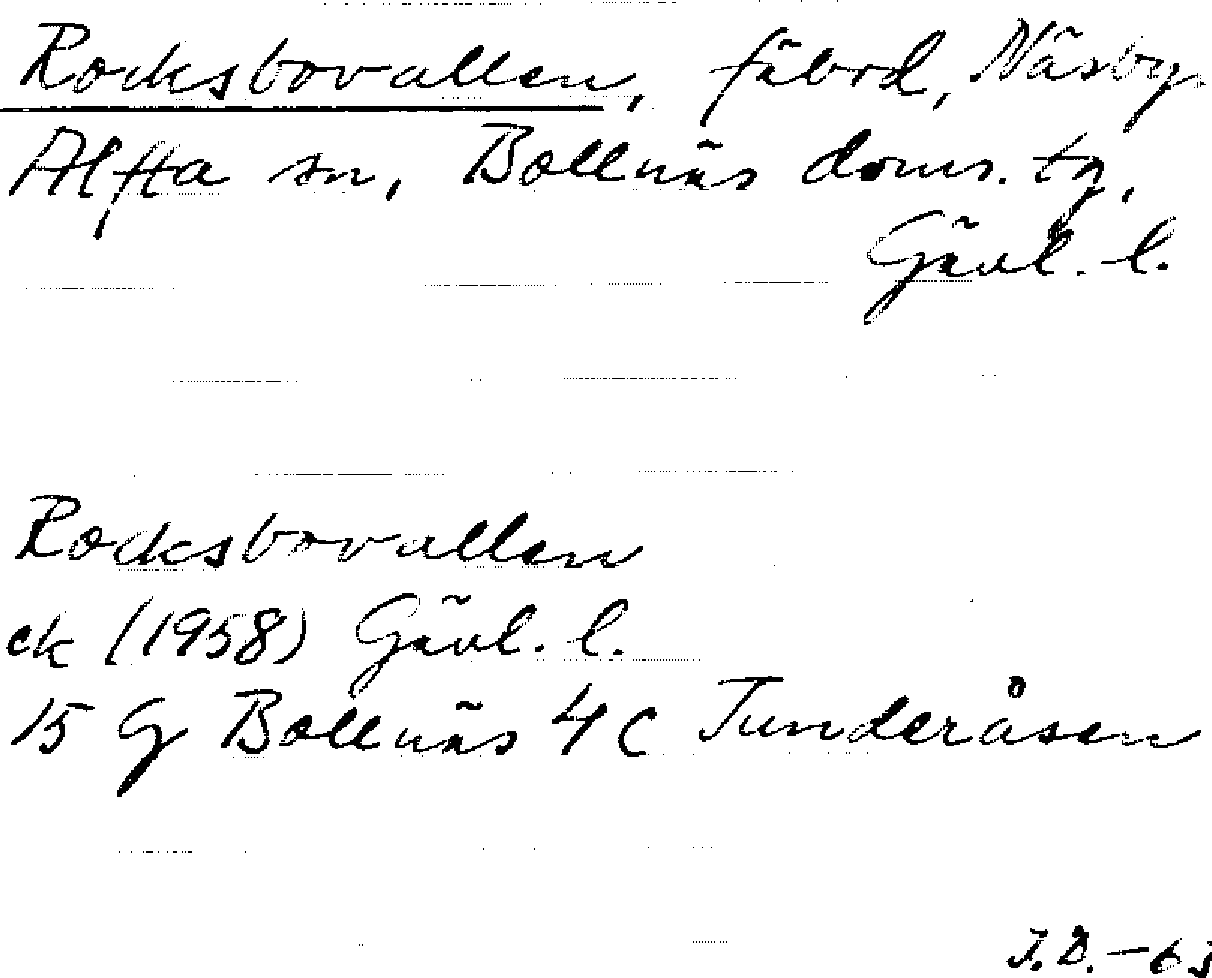 Rocksbovallen, fäbod, Näsby,
Alfta sn, Bollnäs doms. tg,
Gävl. l.
Rocksbovallen
ek (1958) Gävl. l.
15 G Bollnäs 4 c Tunderåsen